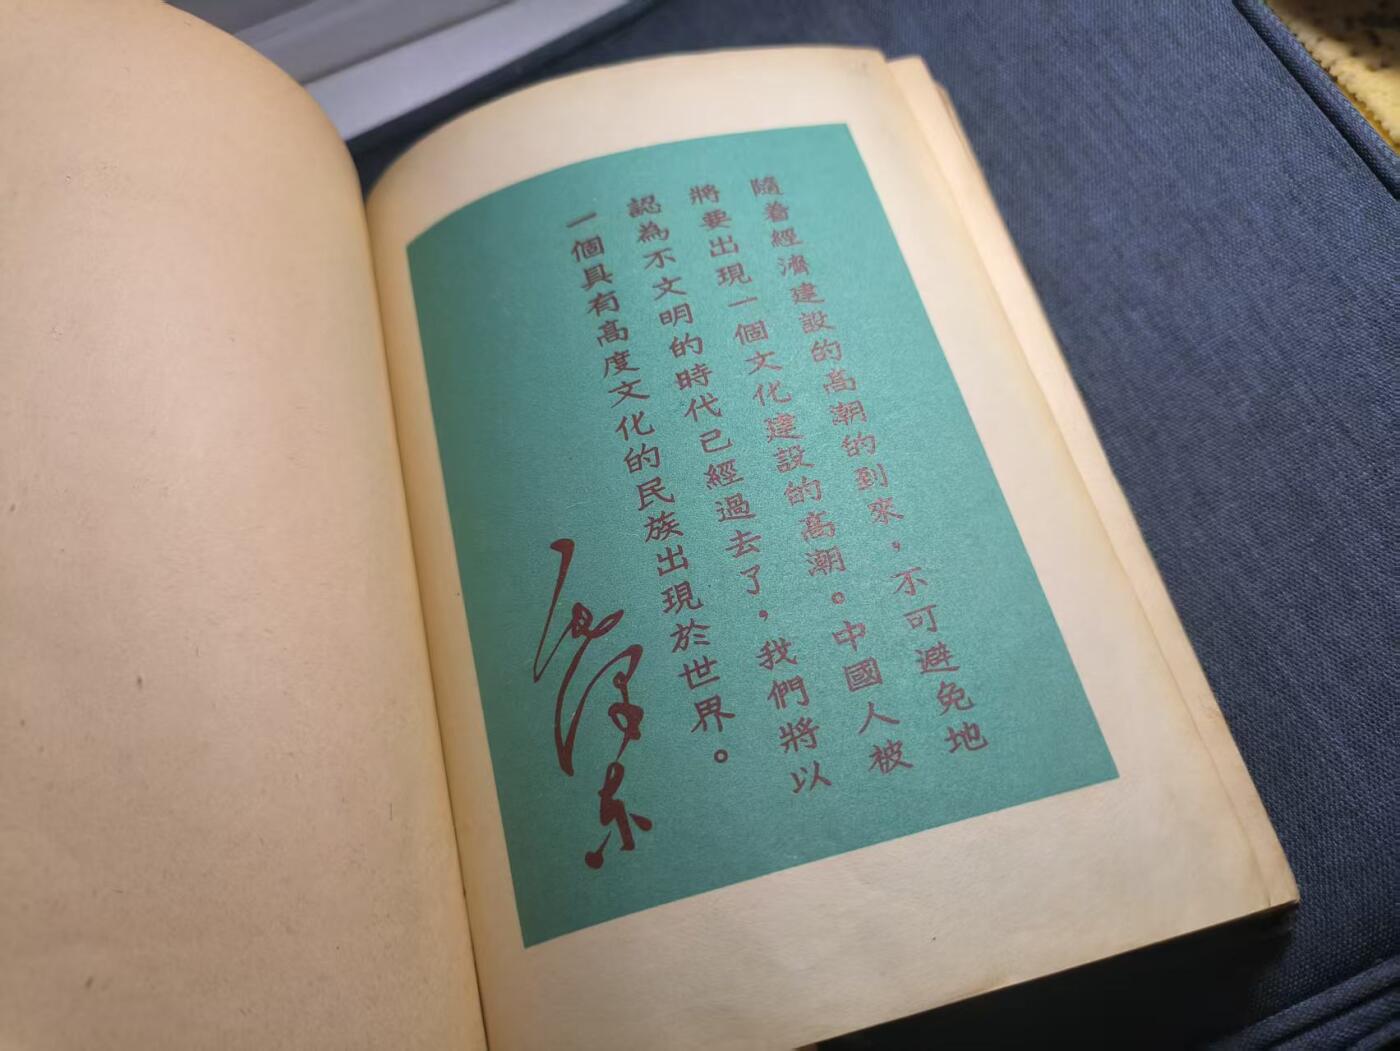 隨着經濟建設的高潮的到來，不可避免地
將要出現一個文化建設的高潮。中國人被
認為不文明的時代已經過去了，我們將以
一個具有高度文化的民族出現於世界。
毛澤东